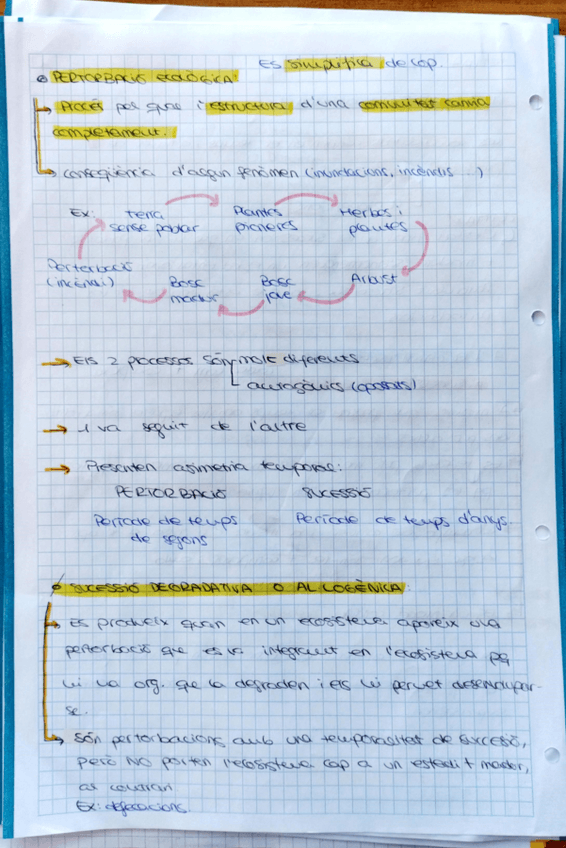 Es simplifica de cop.
PERTORBACIÓ ECOLÒGICA:
Procés pel qual l'estructura d'una comunitat canvia
completament.
Conseqüència d'algun fenòmen (inundacions, incèndis ...)
Ex: Terra Plantes Herbes i
sense poblar pioneres plantes
Perterbació Bosc Bosc Arbust
(incèndi) madur jove
Els 2 processos són molt diferents
antagònics (oposats)
1 va seguit de l'altre
Presenten asimetria temporal:
PERTORBACIÓ SUCESSIÓ
Període de temps Període de temps d'anys
de segons
SUCESSIÓ DEGRADATIVA O AL·LOGÈNICA:
Es produeix quan en un ecosistema apareix una
pertorbació que es va integrant en l'ecosistema pq
hi ha org. que la degraden i els hi permet desenvolupar-
se.
Són perterbacions amb una temporalitat de sucesió,
però NO porten l'ecosistema cap a un estadi + madur,
al contrari
Ex: defecacions.